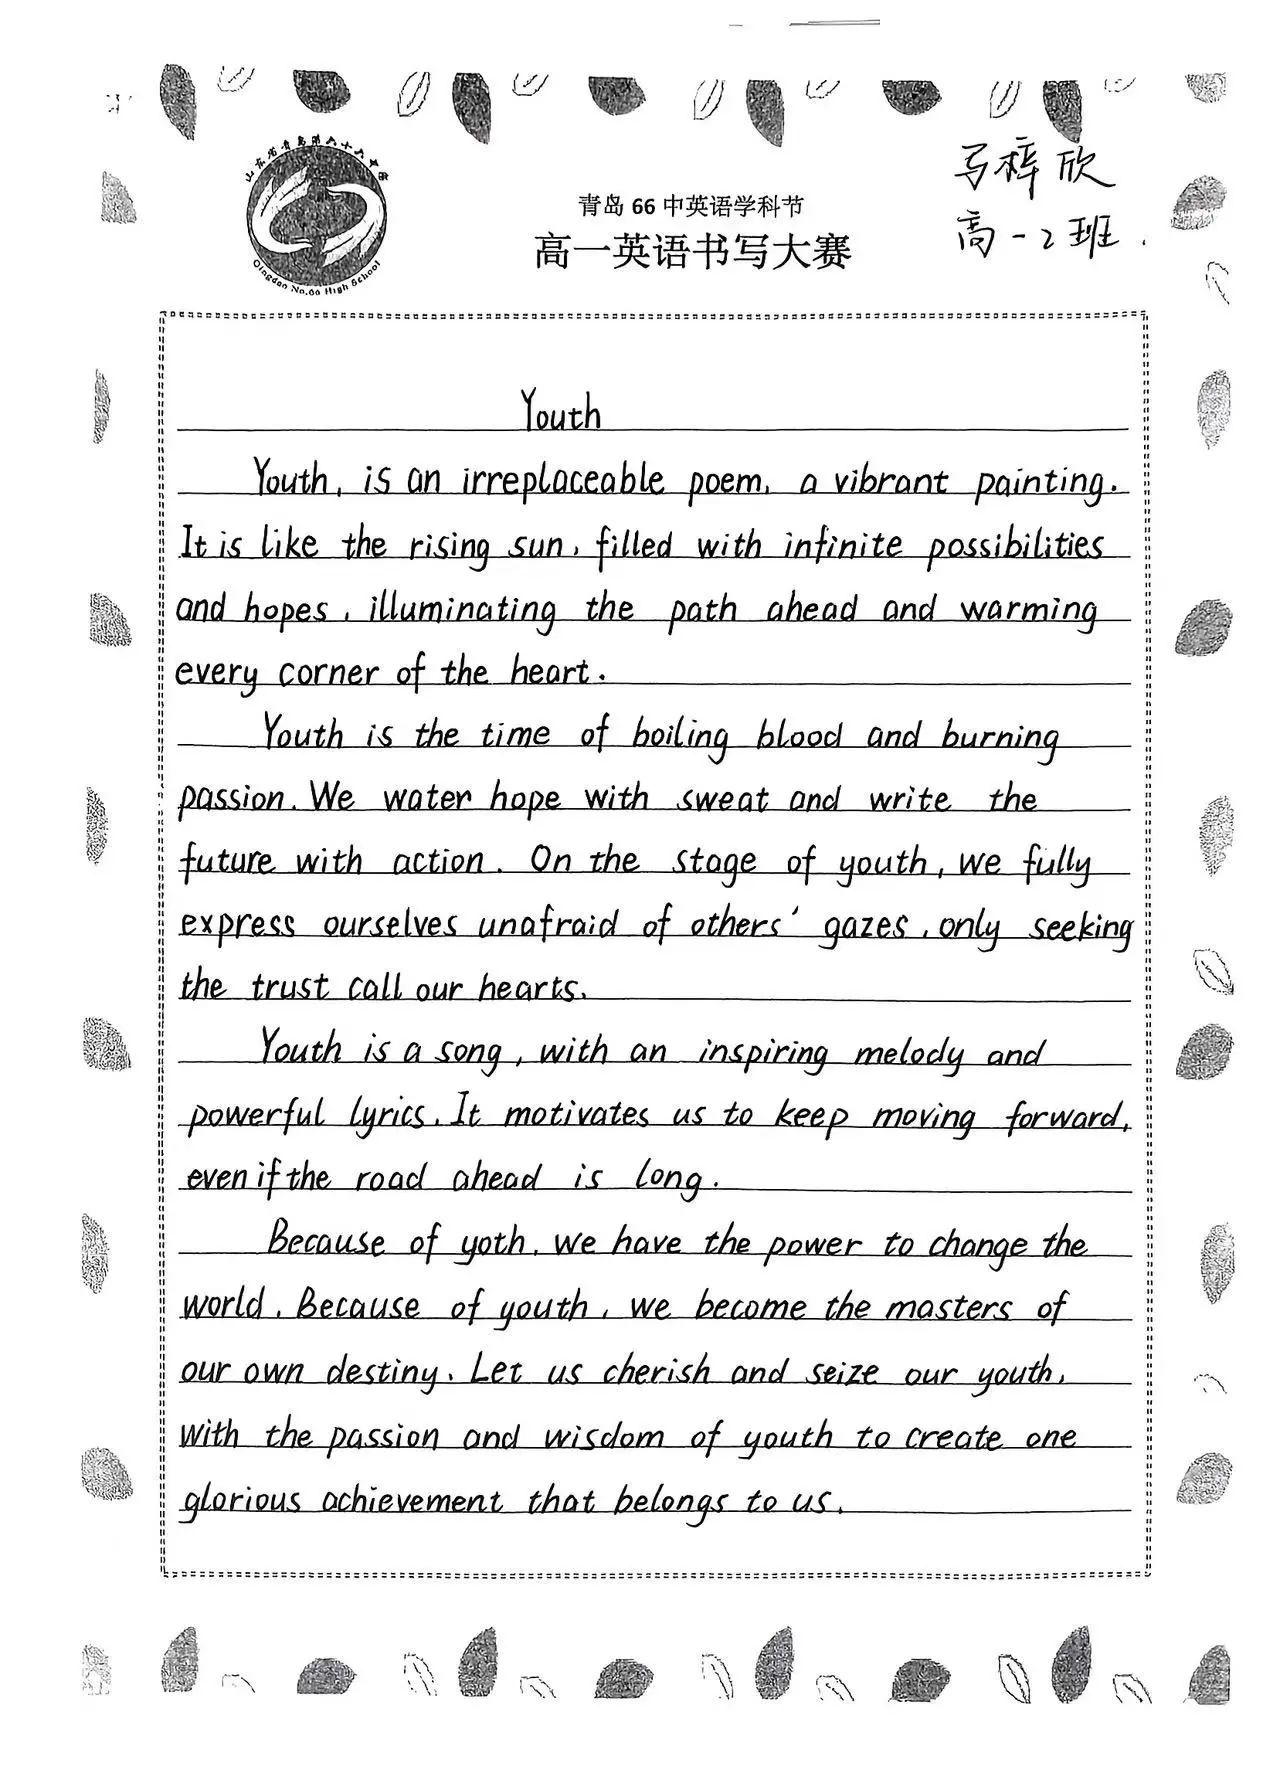 山东省青岛第六十六中学
Qingdao No.66 High School
青岛 66 中英语学科节
高一英语书写大赛
马梓欣
高一2班.
Youth
Youth, is an irreplaceable poem, a vibrant painting.
It is like the rising sun, filled with infinite possibilities
and hopes, illuminating the path ahead and warming
every corner of the heart.
Youth is the time of boiling blood and burning
passion. We water hope with sweat and write the
future with action. On the stage of youth, we fully
express ourselves unafraid of others' gazes, only seeking
the trust call our hearts.
Youth is a song, with an inspiring melody and
powerful lyrics. It motivates us to keep moving forward,
even if the road ahead is long.
Because of yoth, we have the power to change the
world. Because of youth, we become the masters of
our own destiny. Let us cherish and seize our youth,
with the passion and wisdom of youth to create one
glorious achievement that belongs to us.